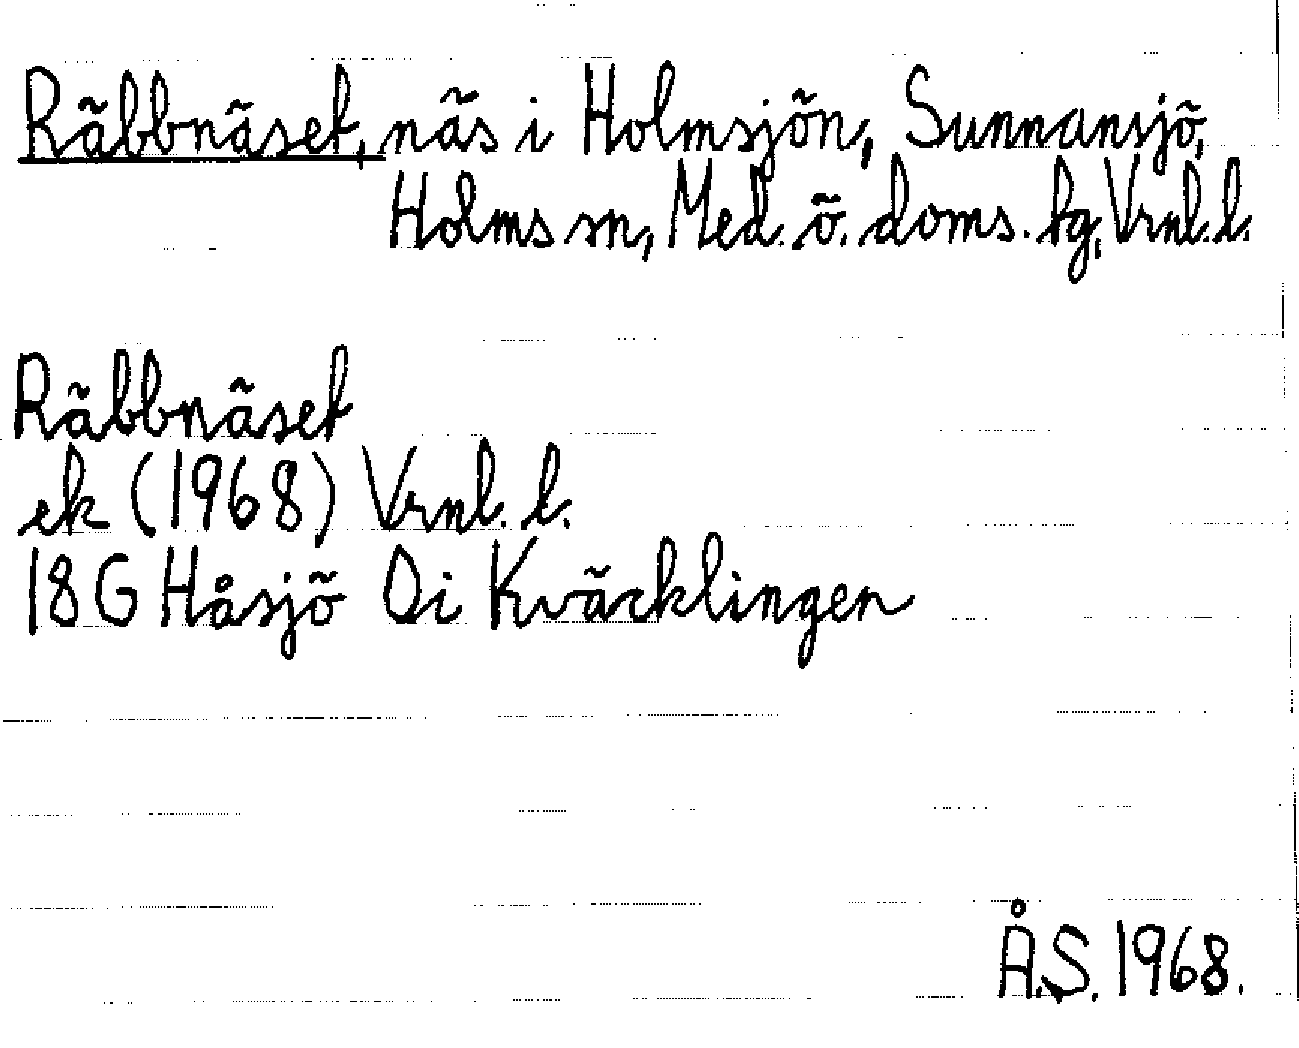 Räbbnäset, näs i Holmsjön, Sunnansjö,
Holms sn, Med. ö. doms. tg, Vrnl. l.
Räbbnäset
ek (1968) Vrnl. l.
18G Håsjö Oi Kväcklingen
Å.S. 1968.